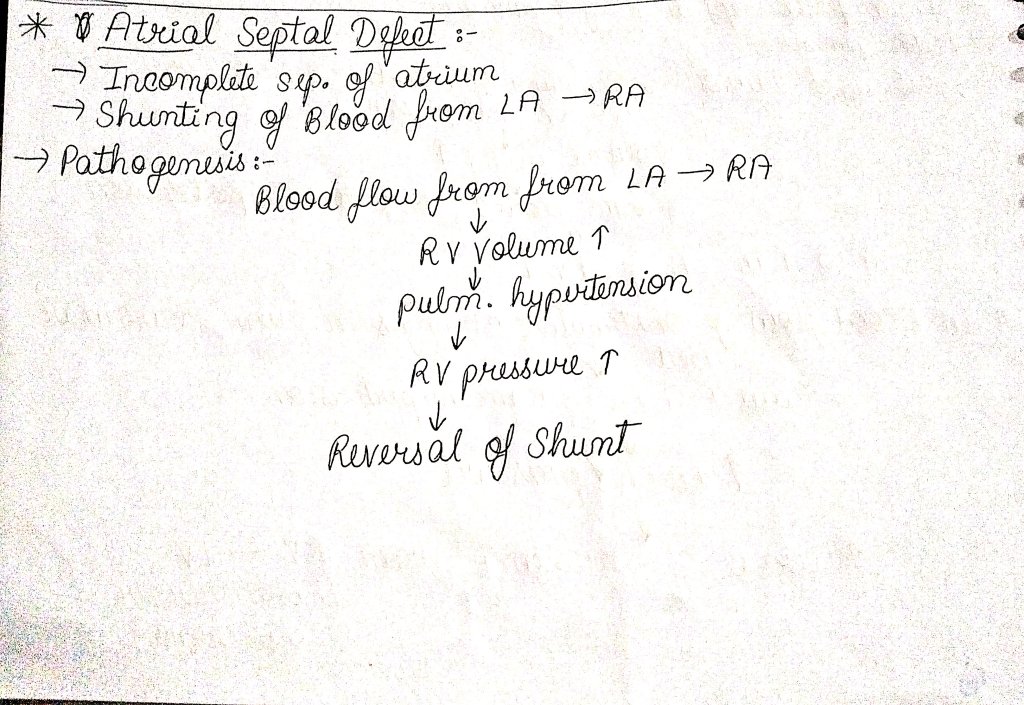 * Atrial Septal Defect :-
→ Incomplete sep. of atrium
→ Shunting of Blood from LA → RA
→ Pathogenesis :-
Blood flow from from LA → RA
↓
RV Volume ↑
↓
pulm. hypertension
↓
RV pressure ↑
↓
Reversal of Shunt